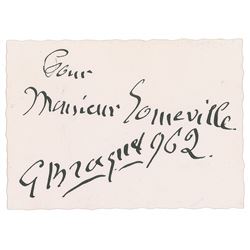 Pour
Monsieur Someville.
G Braque 962.